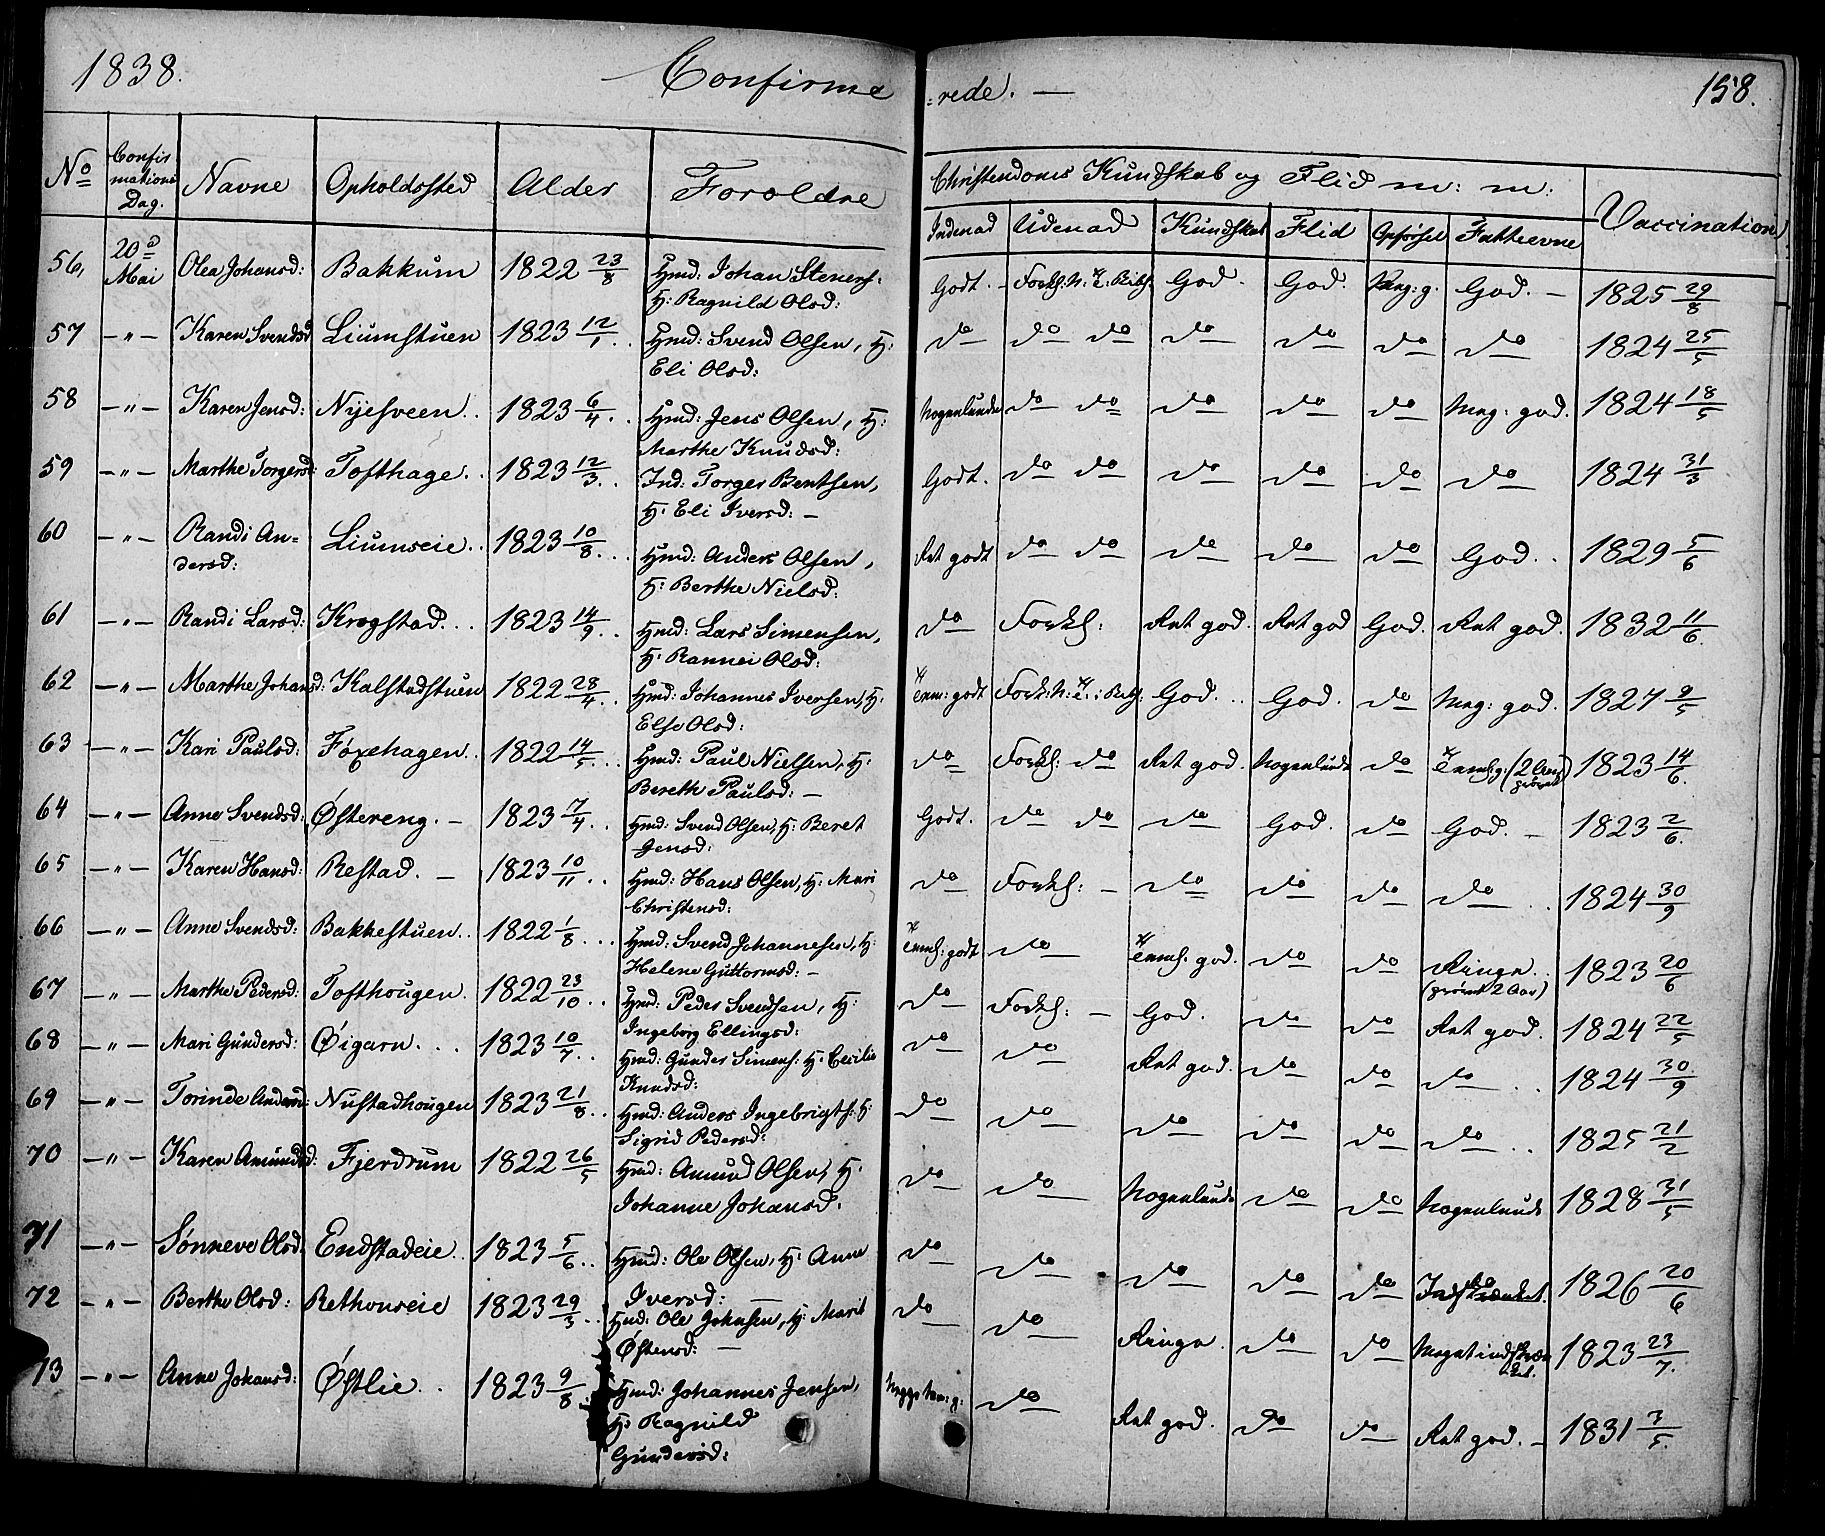 1838. Confirme
:rede. — 158.
No Confirmations Dag. Navne Opholdssted Alder Forældre
Christendoms Kundskab og Flid m: m: Vaccination
Indenad Udenad Kundskab Flid Opførsel Fatteevne
56, 20de Mai Olea Johansd: Bakkum 1822 23/8 Hmd: Johan Steners: Godt. – Forkl: N: T: Bibl. God. God. Meg: g. God. – 1825 29/8
H: Ragnild Olsd:
57 – " – Karen Svendsd Liumstuen 1823 12/1 . . Hmd: Svend Olsen, H: do do do do do do do 1824 25/5
Eli Olsd:
58 – " – Karen Jensd: Nyjesveen . . 1823 6/4 . . Hmd: Jens Olsen, H: Nogenlunde do do do do do Meg: god. 1824 18/5
Marthe Knudsd:
59 – " – Marthe Torgersd: Tofthage . . 1823 12/3 . . Ind: Torger Bentsen, Godt. do do do do do do 1824 31/3
H: Eli Iversd: –
60 – " – Randi An= Liumseie . . 1823 10/8 . . . Hmd: Anders Olsen, Ret godt do do do do do God. . 1829 5/6
dersd: H: Berthe Nielsd:
61 – " – Randi Larsd: Krogstad . . . 1823 14/9 . . Hmd: Lars Simensen, do Forkl: Ret god. Ret god God. Ret god. 1832 11/6
H: Rannei Olsd:
62 – " – Marthe Johansd: Kalstadstuen 1822 28/4 . . Hmd: Johannes Iversen, H: Teml: godt Forkl: N: T: Bibl: God. . . God. do Meg: god. 1827 9/5
Else Olsd:
63 – " – Kari Paulsd: Foxehagen . . 1822 14/5 . . . Hmd: Paul Nielsen, H: do Forkl: do Ret god. Nogenlunde do Teml: g: (2 Aar prøvet) 1823 14/6.
Bereth Paulsd: –
64 – " – Anne Svendsd: Østereng. – 1823 7/4 . . Hmd: Svend Olsen, H: Beret Godt. do do do God. do God. – 1823 2/6.
Jensd:
65 – " – Karen Hansd: Restad. – 1823 10/11 . . Hmd: Hans Olsen, H: Mari do Forkl: – do do do do . . 1824 30/9
Christensd:
66 – " – Anne Svendsd: Bakkestuen . . 1822 1/8 . . . Hmd: Svend Johannesen, H: Teml: godt do Teml: god. do do Ringe . . 1823 20/6
Helene Guttormsd: – (prøvet 2 Aar)
67 – " – Marthe Pedersd: Tofthougen. 1822 23/10 . . Hmd: Peder Svendsen, H: do Forkl: – God. do do Ret god. 1824 22/5
Ingeborg Ellingsd:
68 – " – Mari Gundersd: Øigarn . . . 1823 10/7 . . Hmd: Gunder Simens: H: Cecilie do do Ret god. do do do . . 1824 30/9
Knudsd:
69 – " – Torinde Andersd: Nustadhougen 1823 21/8 . . Hmd: Anders Ingebrigts: H: do do do do do do . . 1825 21/2
Sigrid Pedersd:
70 – " – Karen Amundsd: Fjerdrum 1822 26/5 Hmd: Amund Olsen, H: do do Nogenlunde do do Nogenlunde 1828 31/5
Johanne Johansd.
71 – " – Sønneve Olsd. Endstadeie . . 1823 5/6 . . Hmd: Ole Olsen, H: Anne do do do do do Indskrænket. 1826 20/6
Iversd: —
72 – " – Berthe Olsd: Rethouseie 1823 29/3 . . Hmd: Ole Johnsen, H: Marit do do Ringe. do do Meget indskræn= 1823 23/7.
Østensd: – ket.
73 – " – Anne Johansd: Østlie . . 1823 9/8 . Hmd: Johannes Jensen, do Ret god. do do Ret god. – 1831 3/5.
H: Ragnild
Gundersd: